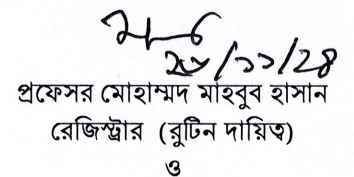 ২৮/১১/২৪
প্রফেসর মোহাম্মদ মাহবুব হাসান
রেজিস্ট্রার (রুটিন দায়িত্ব)
ও